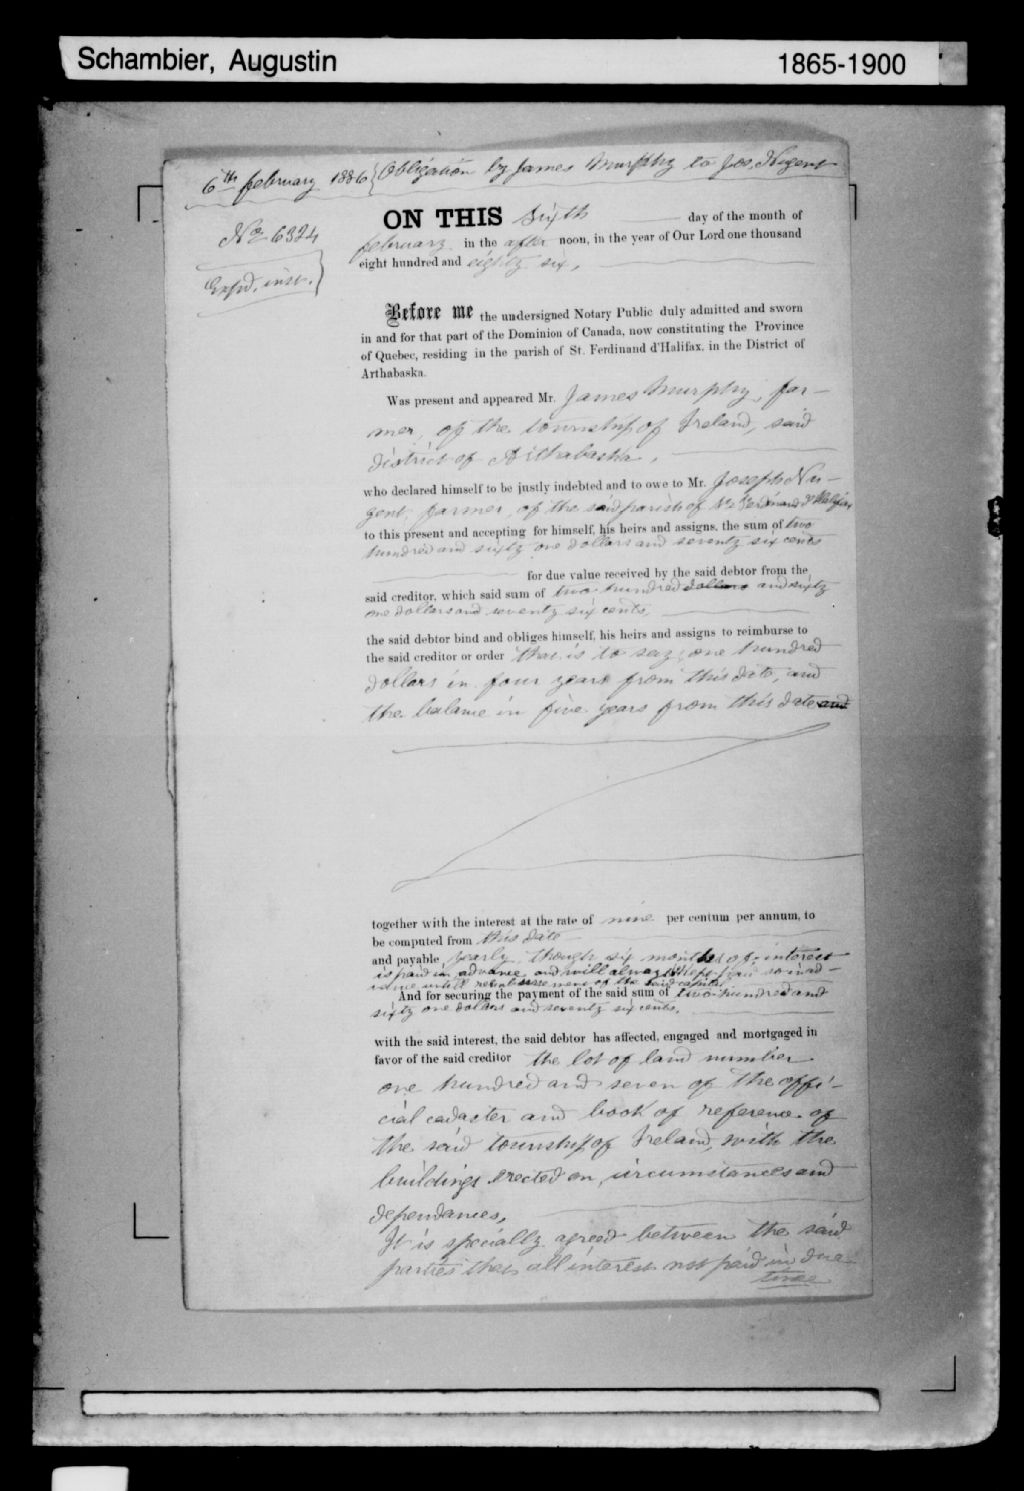 Schambier, Augustin 1865-1900
6th february 1886 { Obligation by James Murphy to Jos. Nugent
No 6324
ON THIS Sixth day of the month of
february in the after noon, in the year of Our Lord one thousand
eight hundred and eighty six,
Before me the undersigned Notary Public duly admitted and sworn
in and for that part of the Dominion of Canada, now constituting the Province
of Quebec, residing in the parish of St. Ferdinand d'Halifax, in the District of
Arthabaska.
Was present and appeared Mr. James Murphy, far-
mer, of the township of Ireland, said
district of Arthabaska,
who declared himself to be justly indebted and to owe to Mr. Joseph Nu-
gent, farmer, of the said parish of St Ferdinand d'Halifax
to this present and accepting for himself, his heirs and assigns, the sum of two
hundred and sixty one dollars and seventy six cents
for due value received by the said debtor from the
said creditor, which said sum of two hundred dollars and sixty
one dollars and seventy six cents,
the said debtor bind and obliges himself, his heirs and assigns to reimburse to
the said creditor or order that is to say; one hundred
dollars in four years from this date, and
the balance in five years from this date and
together with the interest at the rate of nine per centum per annum, to
be computed from this date
and payable yearly, though six months of interest
is paid in advance and will always
untill reimbursement of the said capital
And for securing the payment of the said sum of two hundred and
sixty one dollars and seventy six cents,
with the said interest, the said debtor has affected, engaged and mortgaged in
favor of the said creditor the lot of land number
one hundred and seven of the offi-
cial cadaster and book of reference of
the said township of Ireland, with the
buildings erected on, circumstances and
dependances,
It is specially agreed between the said
parties that all interest not paid in due
time